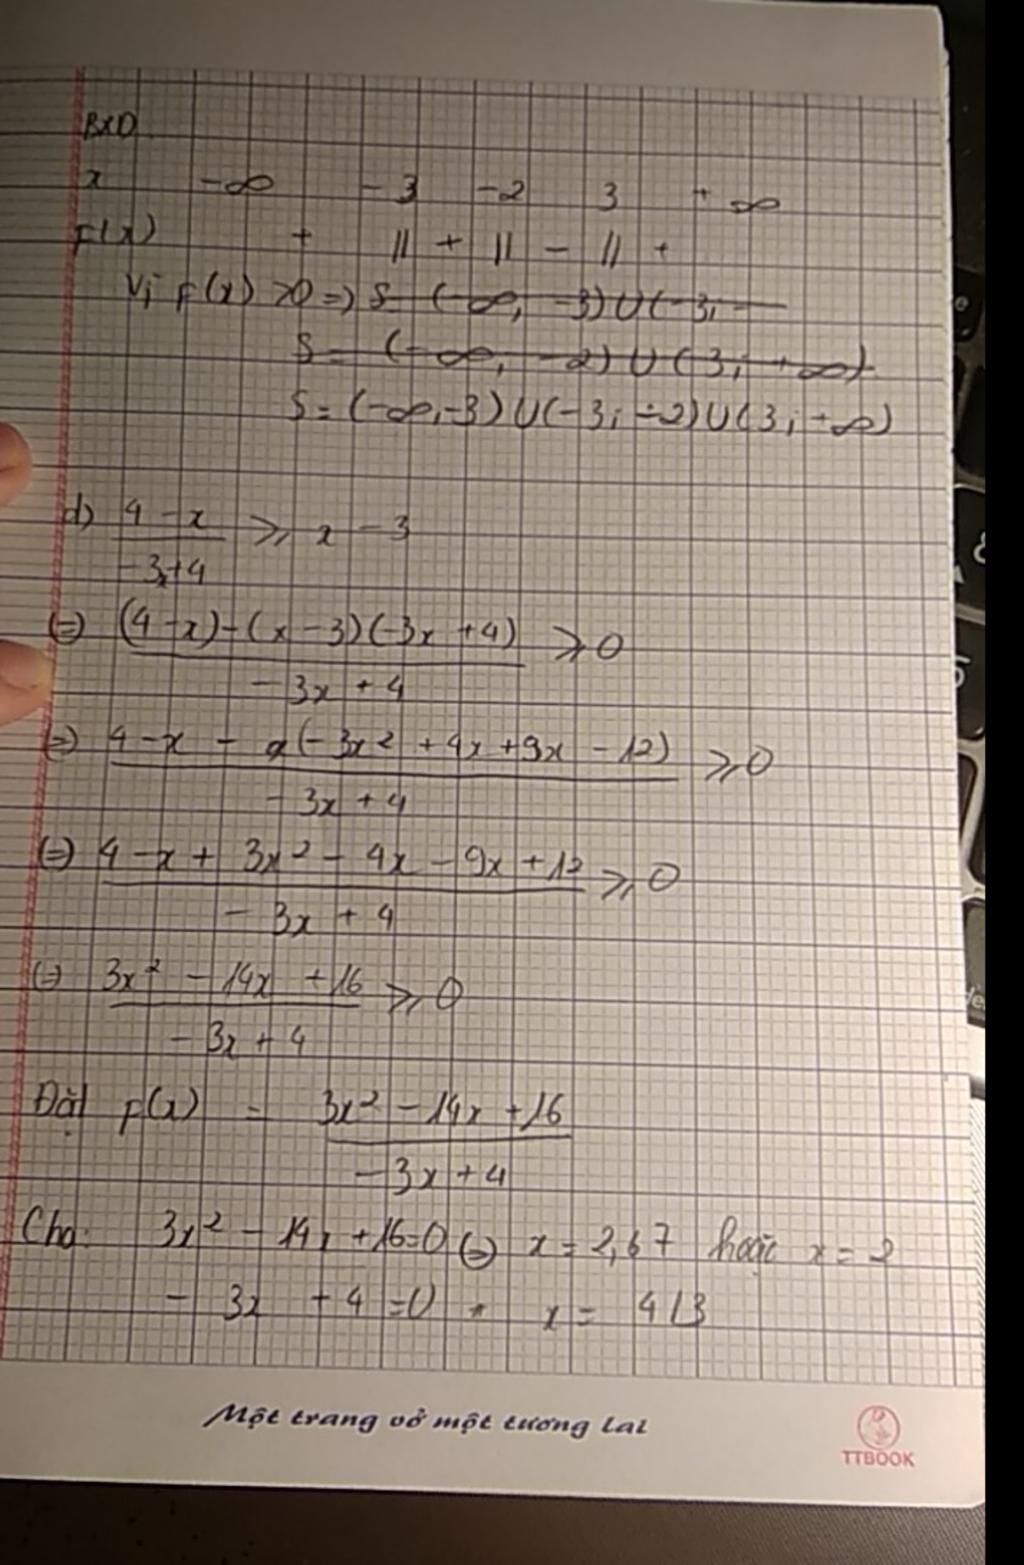 BXD
x -∞ -3 -2 3 +∞
F(x) + || + || - || +
Vì F(x) >0 => S (-∞, -3)U(-3;
S = (-∞, -2) U (3; +∞)
S = (-∞,-3) U(-3; -2)U(3; +∞)
d) 4-x / -3x+4 ≥ x - 3
(=) (4-x)-(x-3)(-3x+4) / -3x+4 ≥ 0
(=) 4-x - (-3x² + 4x + 9x - 12) / -3x+4 ≥ 0
(=) 4-x + 3x² - 4x - 9x + 12 / -3x + 4 ≥ 0
(=) 3x² - 14x + 16 / -3x + 4 ≥ 0
Đặt F(x) = 3x² - 14x + 16 / -3x + 4
Cho: 3x² - 14x + 16=0 (=) x = 2,67 hoặc x = 2
- 3x + 4 =0 x = 4/3
Một trang vở một tương lai
TTBOOK